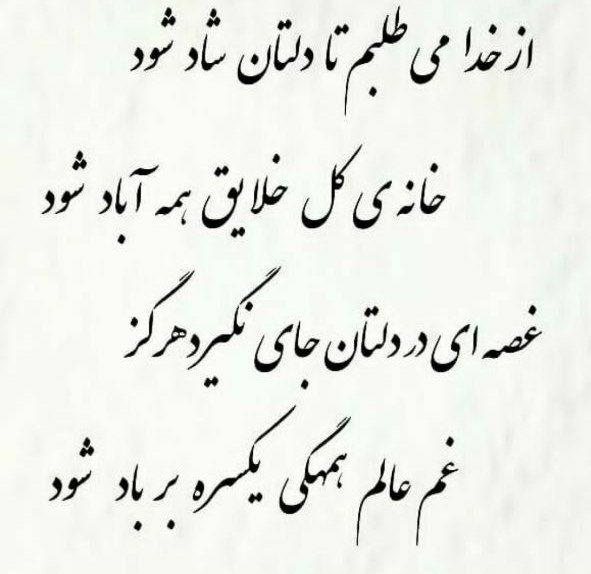 از خدا می طلبم تا دلتان شاد شود
خانه ی کل خلایق همه آباد شود
غصه ای در دلتان جای نگیرد هرگز
غم عالم همگی یکسره بر باد شود